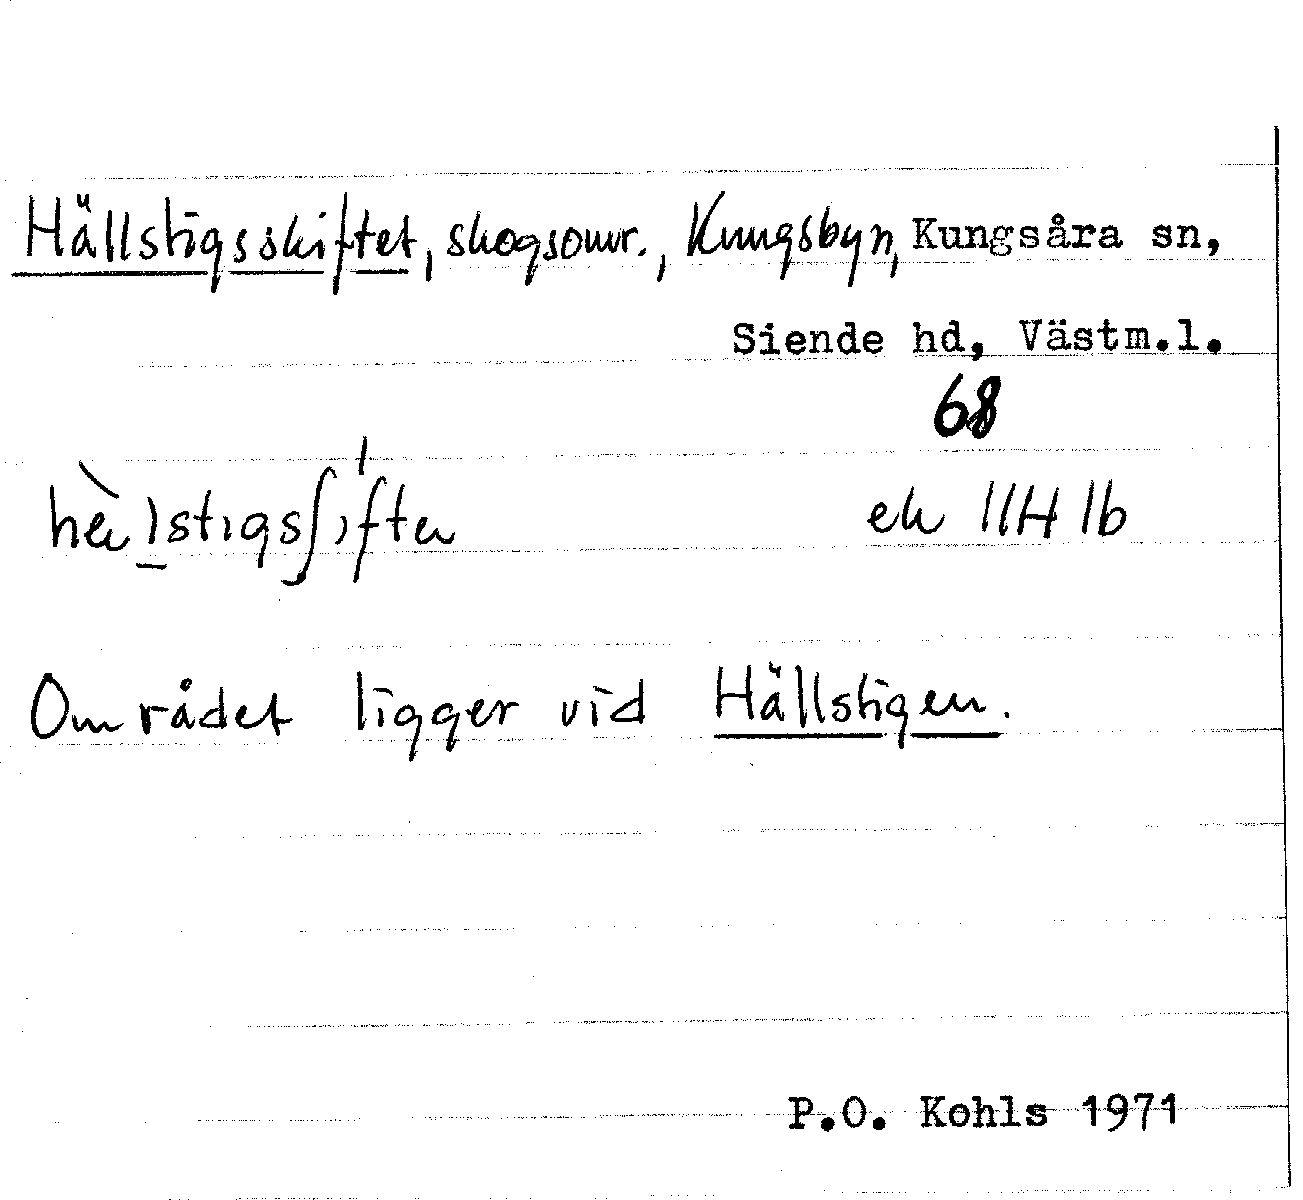 Hällstigsskiftet, skogsomr., Kungsbyn, Kungsåra sn,
Siende hd, Västm.l.
68
ek 11H 1b
Området ligger vid Hällstigen.
P.O. Kohls 1971